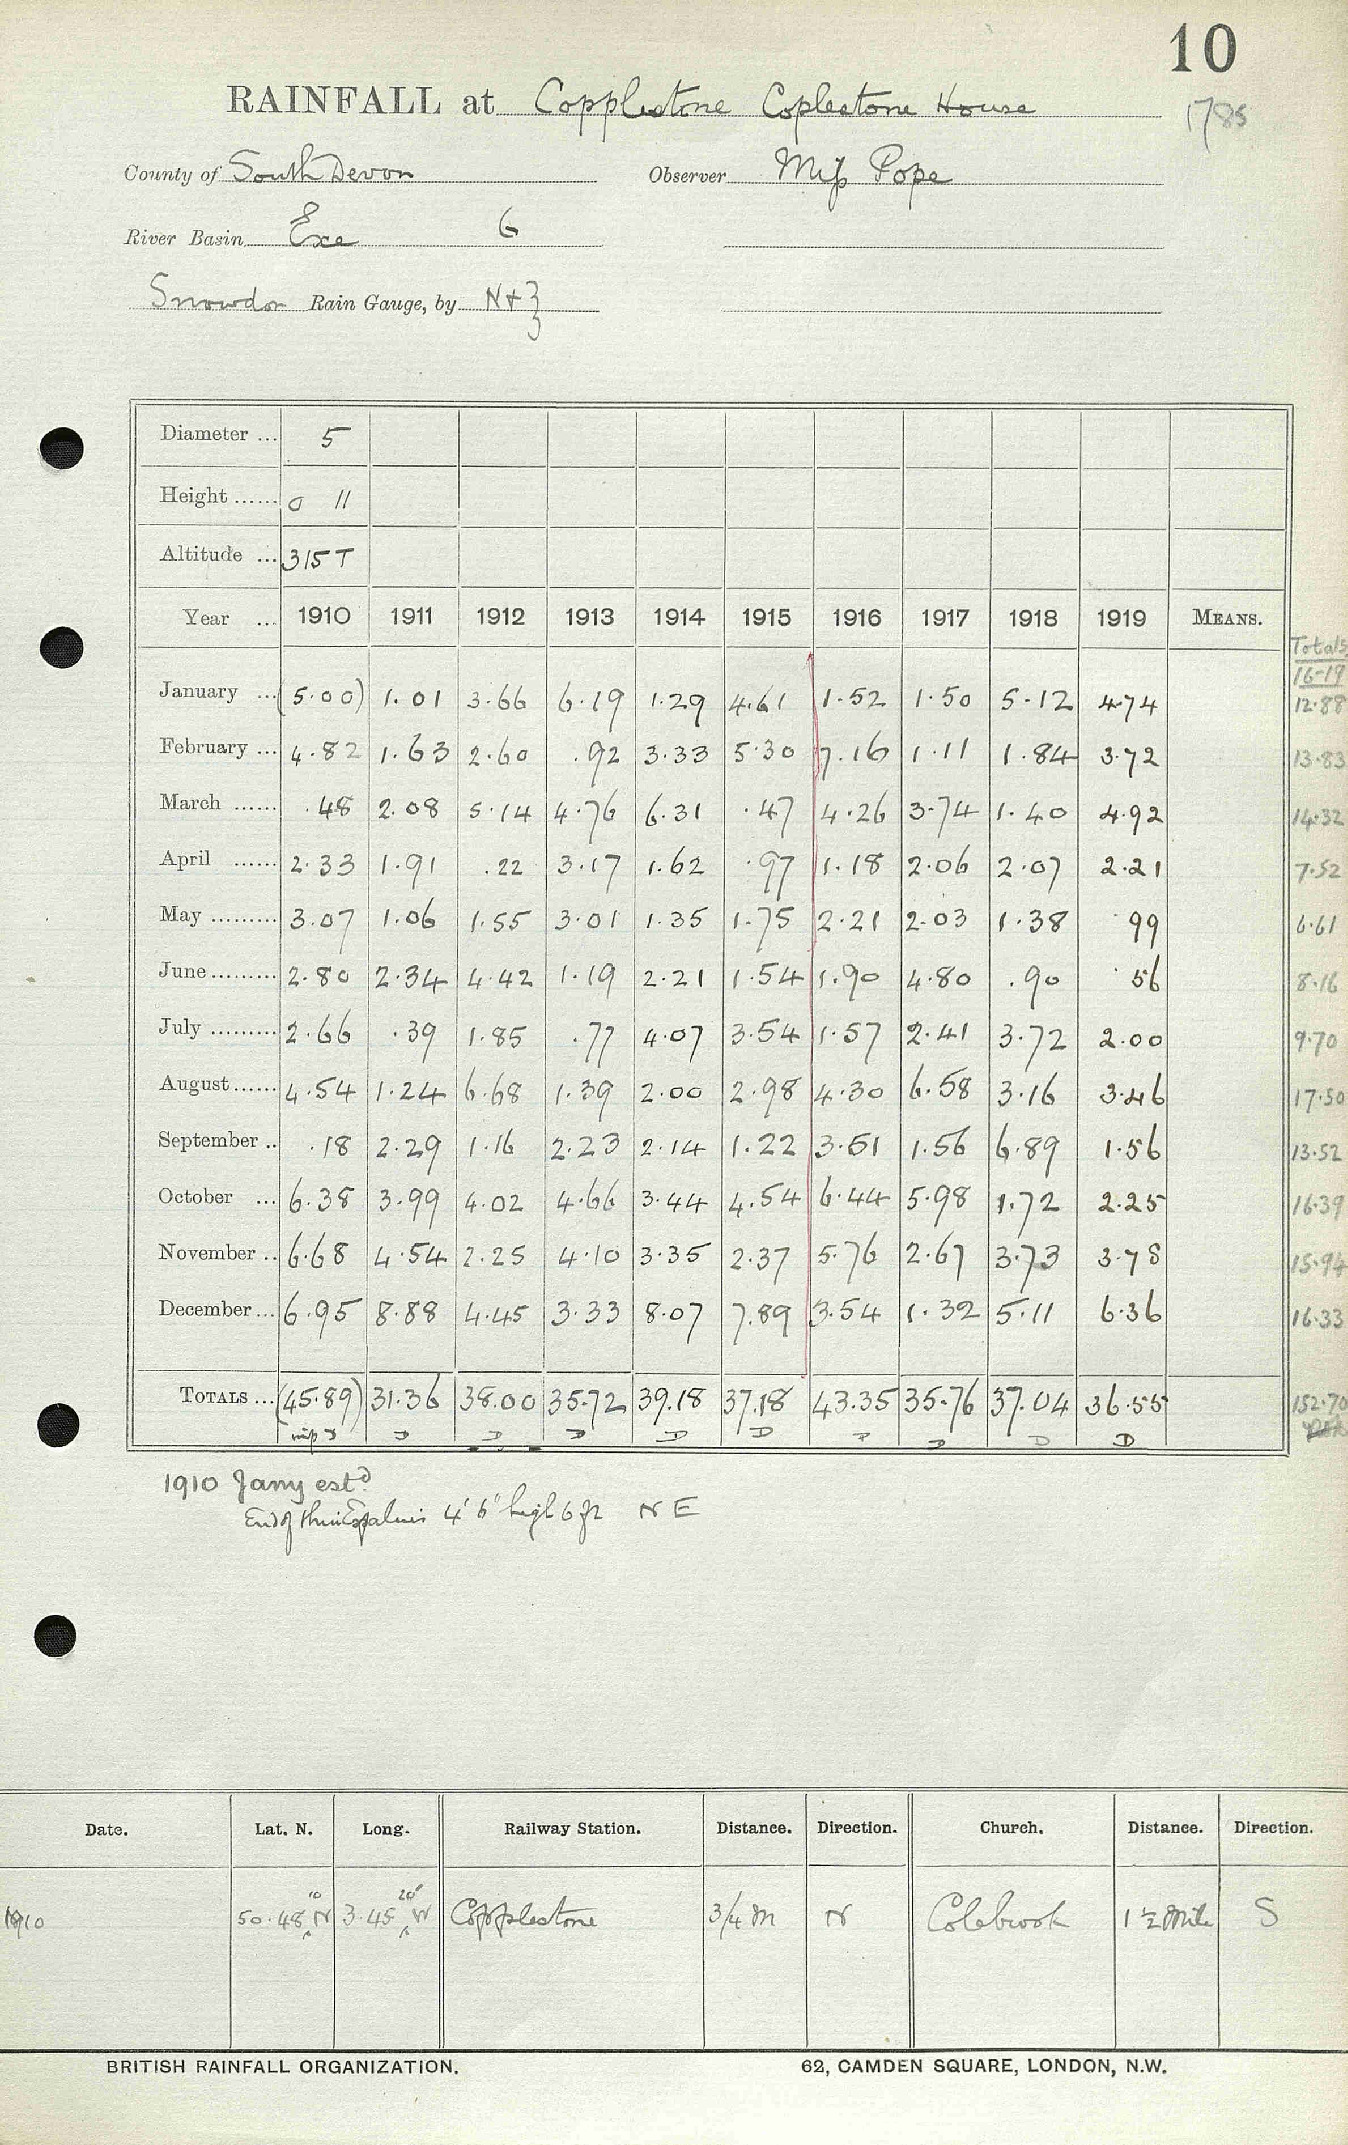 10
RAINFALL at Copplestone Coplestone House
1785
County of South Devon Observer Miss Pope
River Basin Exe 6
Snowdon Rain Gauge, by N + Z
Diameter ... 5
Height ...... 0 11
Altitude ... 315 T
Year ... 1910 1911 1912 1913 1914 1915 1916 1917 1918 1919 MEANS.
Totals
16-19
January ... (5.00) 1.01 3.66 6.19 1.29 4.61 1.52 1.50 5.12 4.74 12.88
February ... 4.82 1.63 2.60 .92 3.33 5.30 7.16 1.11 1.84 3.72 13.83
March ...... .48 2.08 5.14 4.76 6.31 .47 4.26 3.74 1.40 4.92 14.32
April ...... 2.33 1.91 .22 3.17 1.62 .97 1.18 2.06 2.07 2.21 7.52
May ......... 3.07 1.06 1.55 3.01 1.35 1.75 2.21 2.03 1.38 99 6.61
June ......... 2.80 2.34 4.42 1.19 2.21 1.54 1.90 4.80 .90 56 8.16
July ......... 2.66 .39 1.85 .77 4.07 3.54 1.57 2.41 3.72 2.00 9.70
August ...... 4.54 1.24 6.68 1.39 2.00 2.98 4.30 6.58 3.16 3.46 17.50
September .. .18 2.29 1.16 2.23 2.14 1.22 3.51 1.56 6.89 1.56 13.52
October ... 6.38 3.99 4.02 4.66 3.44 4.54 6.44 5.98 1.72 2.25 16.39
November .. 6.68 4.54 2.25 4.10 3.35 2.37 5.76 2.67 3.73 3.78 15.94
December ... 6.95 8.88 4.45 3.33 8.07 7.89 3.54 1.32 5.11 6.36 16.33
TOTALS ... (45.89) 31.36 38.00 35.72 39.18 37.18 43.35 35.76 37.04 36.55 152.70
D D D D D D D D D
1910 Jany estd
End of thin Espalier 4' 6" high 6 ft N E
Date. Lat. N. Long. Railway Station. Distance. Direction. Church. Distance. Direction.
10 20
1910 50.48 N 3.45 W Copplestone 3/4 m N Colebrook 1 1/2 Mile S
BRITISH RAINFALL ORGANIZATION. 62, CAMDEN SQUARE, LONDON, N.W.